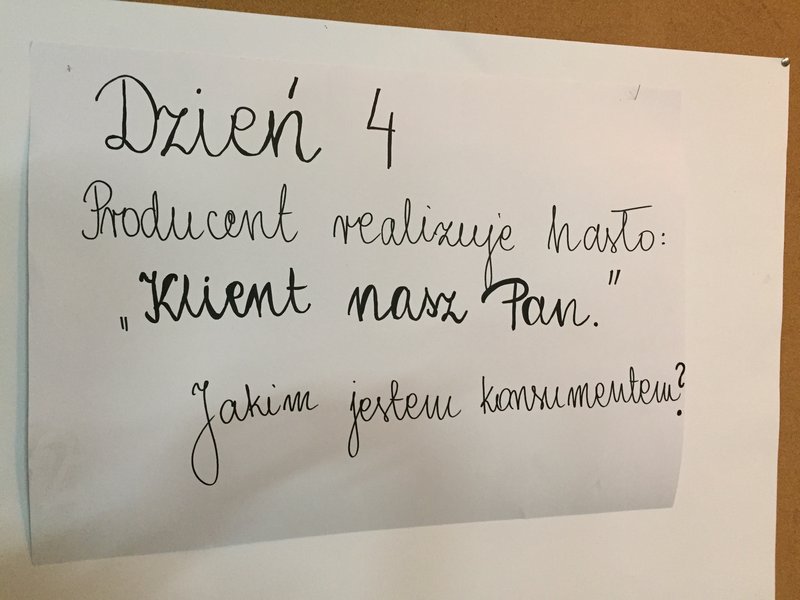 Dzień 4
Producent realizuje hasło:
„Klient nasz Pan."
Jakim jestem konsumentem?